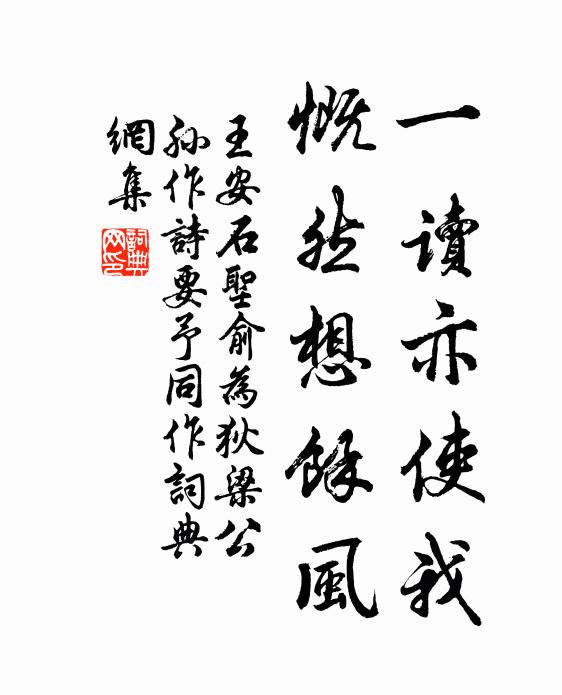 一讀亦使我
慨然想餘風
王安石聖俞為狄梁公
孫作詩要予同作詞典
網集
詞典
网印